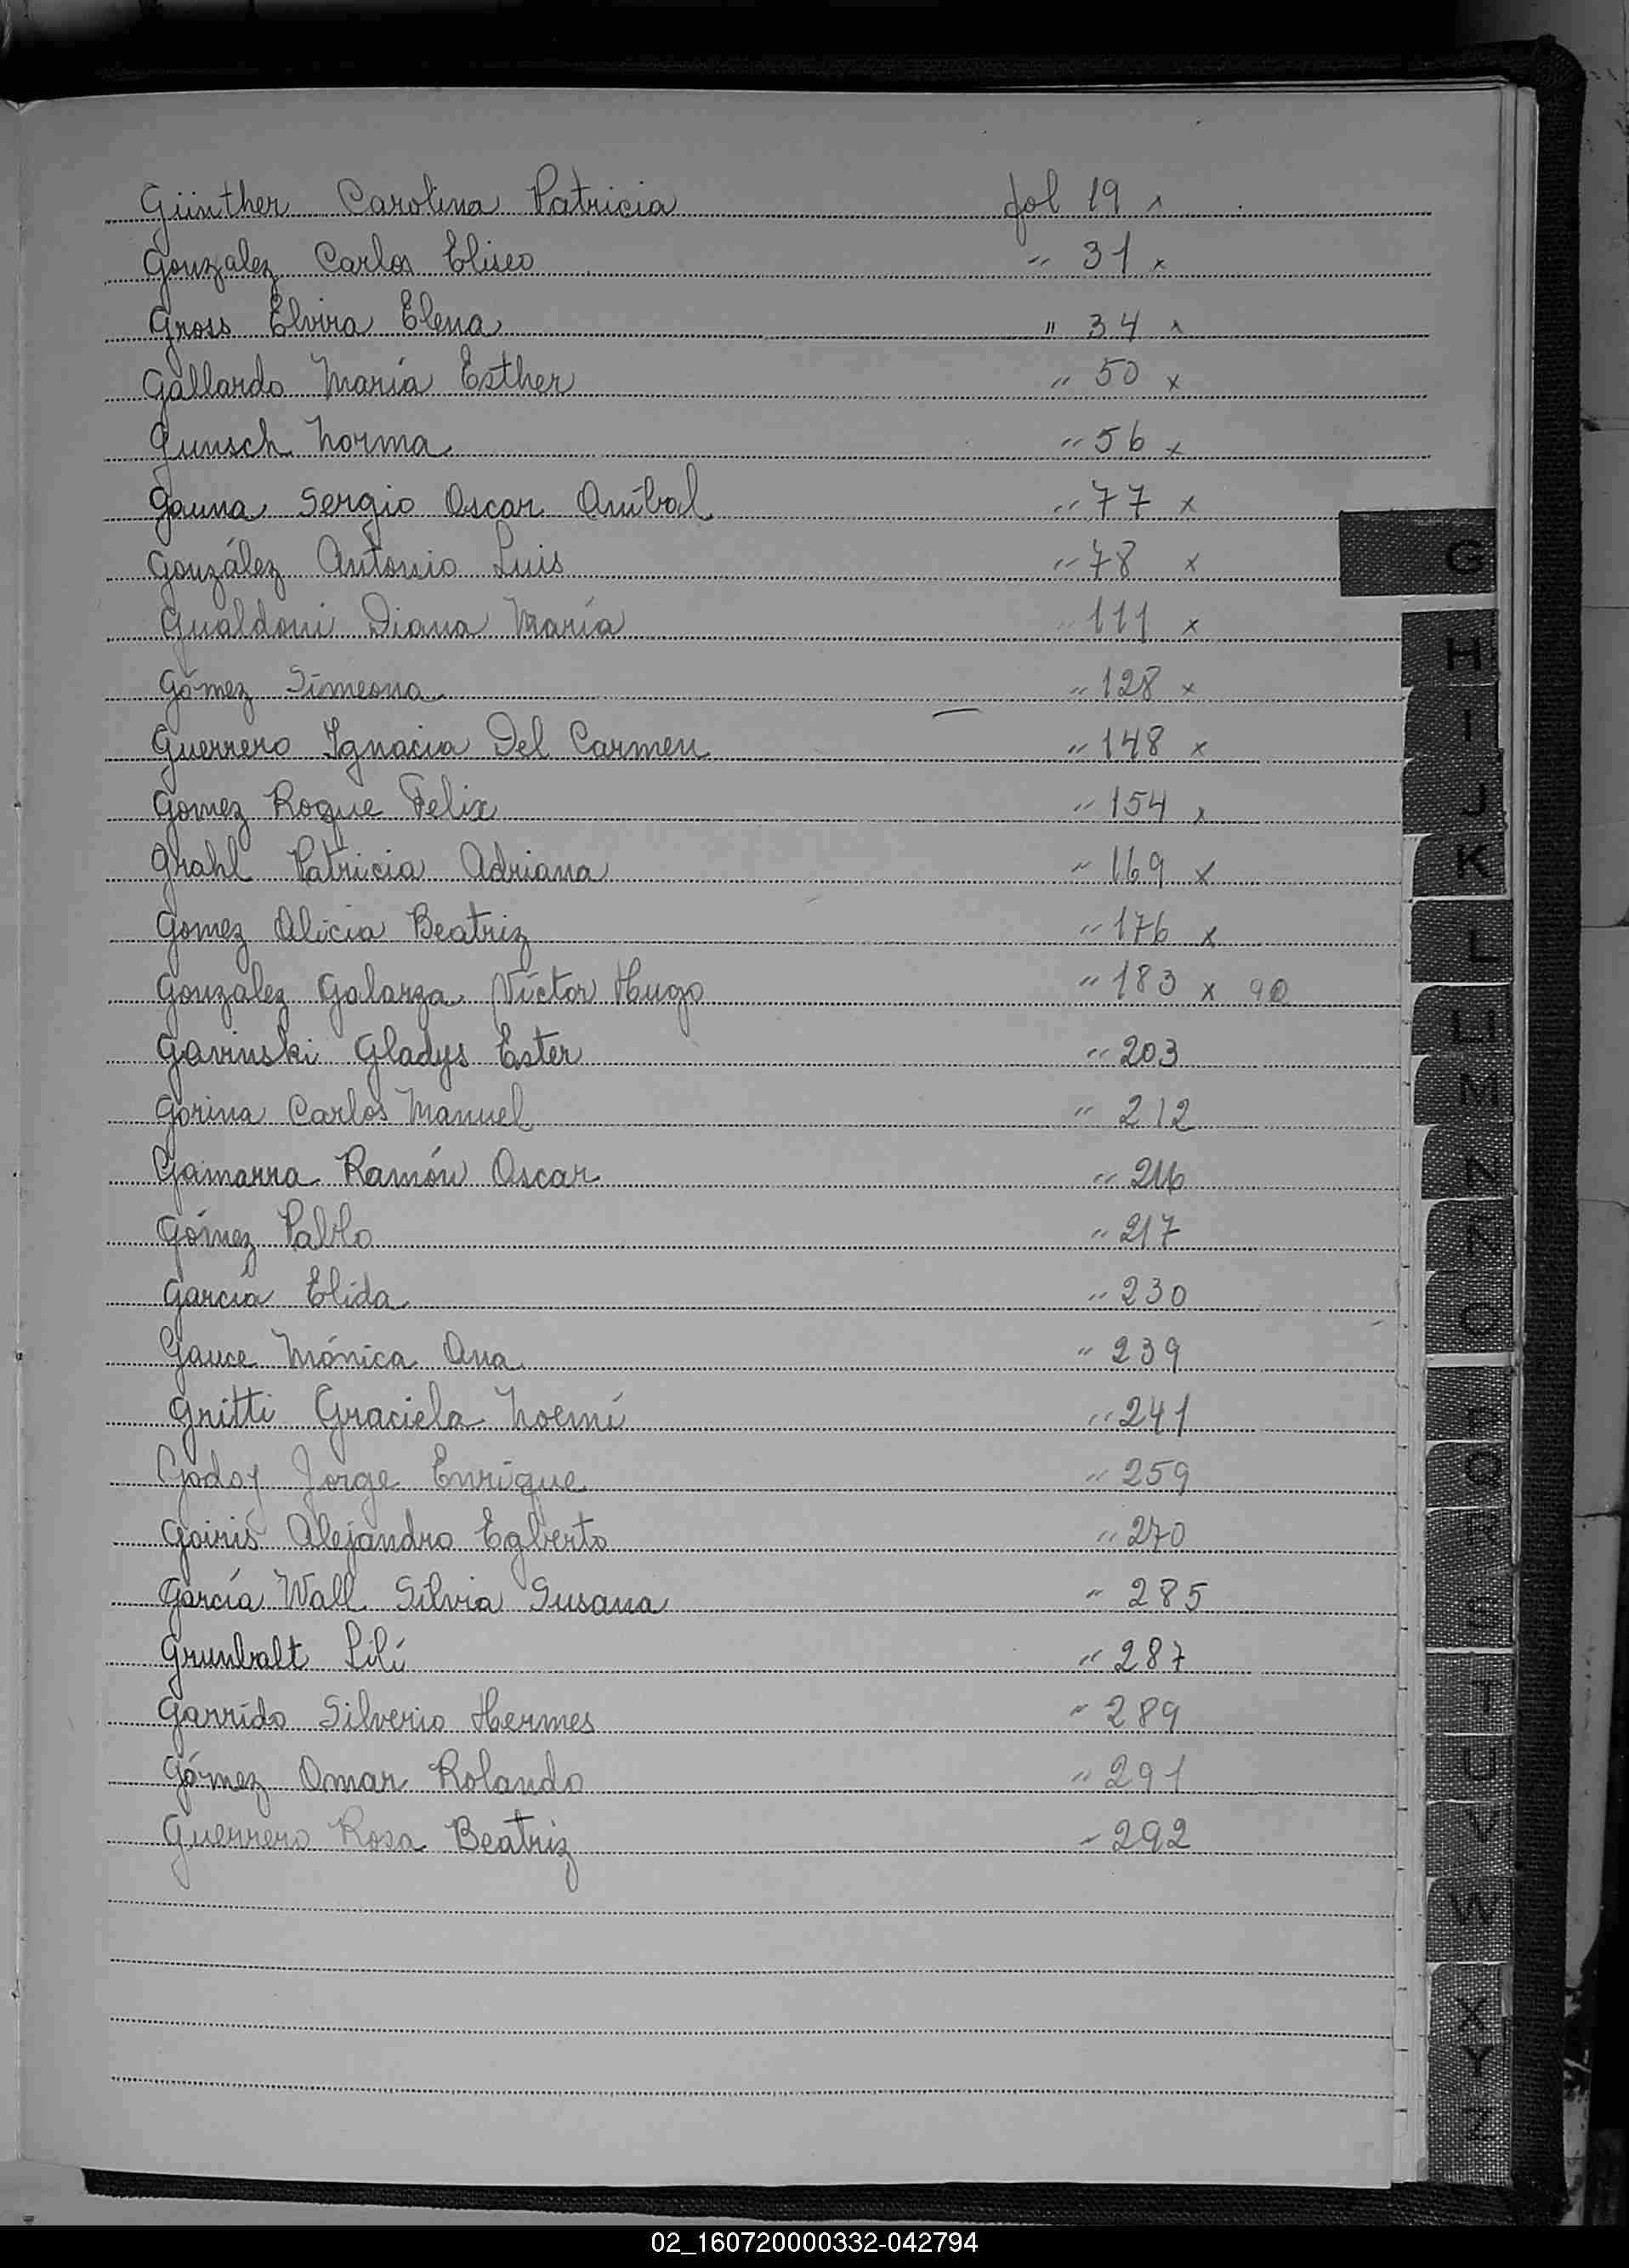 Günther Carolina Patricia fol 19 x
Gonzalez Carlos Eliseo " 31 x
Gross Elvira Elena " 34 x
Gallardo María Esther " 50 x
Gunsch Norma " 56 x
Gauna Sergio Oscar Aníbal " 77 x
González Antonio Luis " 78 x
Gualdoni Diana María " 111 x
Gómez Simeona " 128 x
Guerrero Ignacia Del Carmen " 148 x
Gomez Roque Felix " 154 x
Grahl Patricia Adriana " 169 x
Gomez Alicia Beatriz " 176 x
González Galarza Víctor Hugo " 183 x 90
Gavinski Gladys Ester " 203
Gorina Carlos Manuel " 212
Gamarra Ramón Oscar " 216
Gómez Pablo " 217
García Elida " 230
Gauce Mónica Ana " 239
Gritti Graciela Noemí " 241
Godoy Jorge Enrique " 259
Goiris Alejandro Egberto " 270
García Wall Silvia Susana " 285
Grunbalt Lilí " 287
Garrido Silverio Hermes " 289
Gómez Omar Rolando " 291
Guerrero Rosa Beatriz " 292
G
H
I
J
K
L
LL
M
N
Ñ
O
P
Q
R
S
T
U
V
W
X
Y
Z
02_160720000332-042794